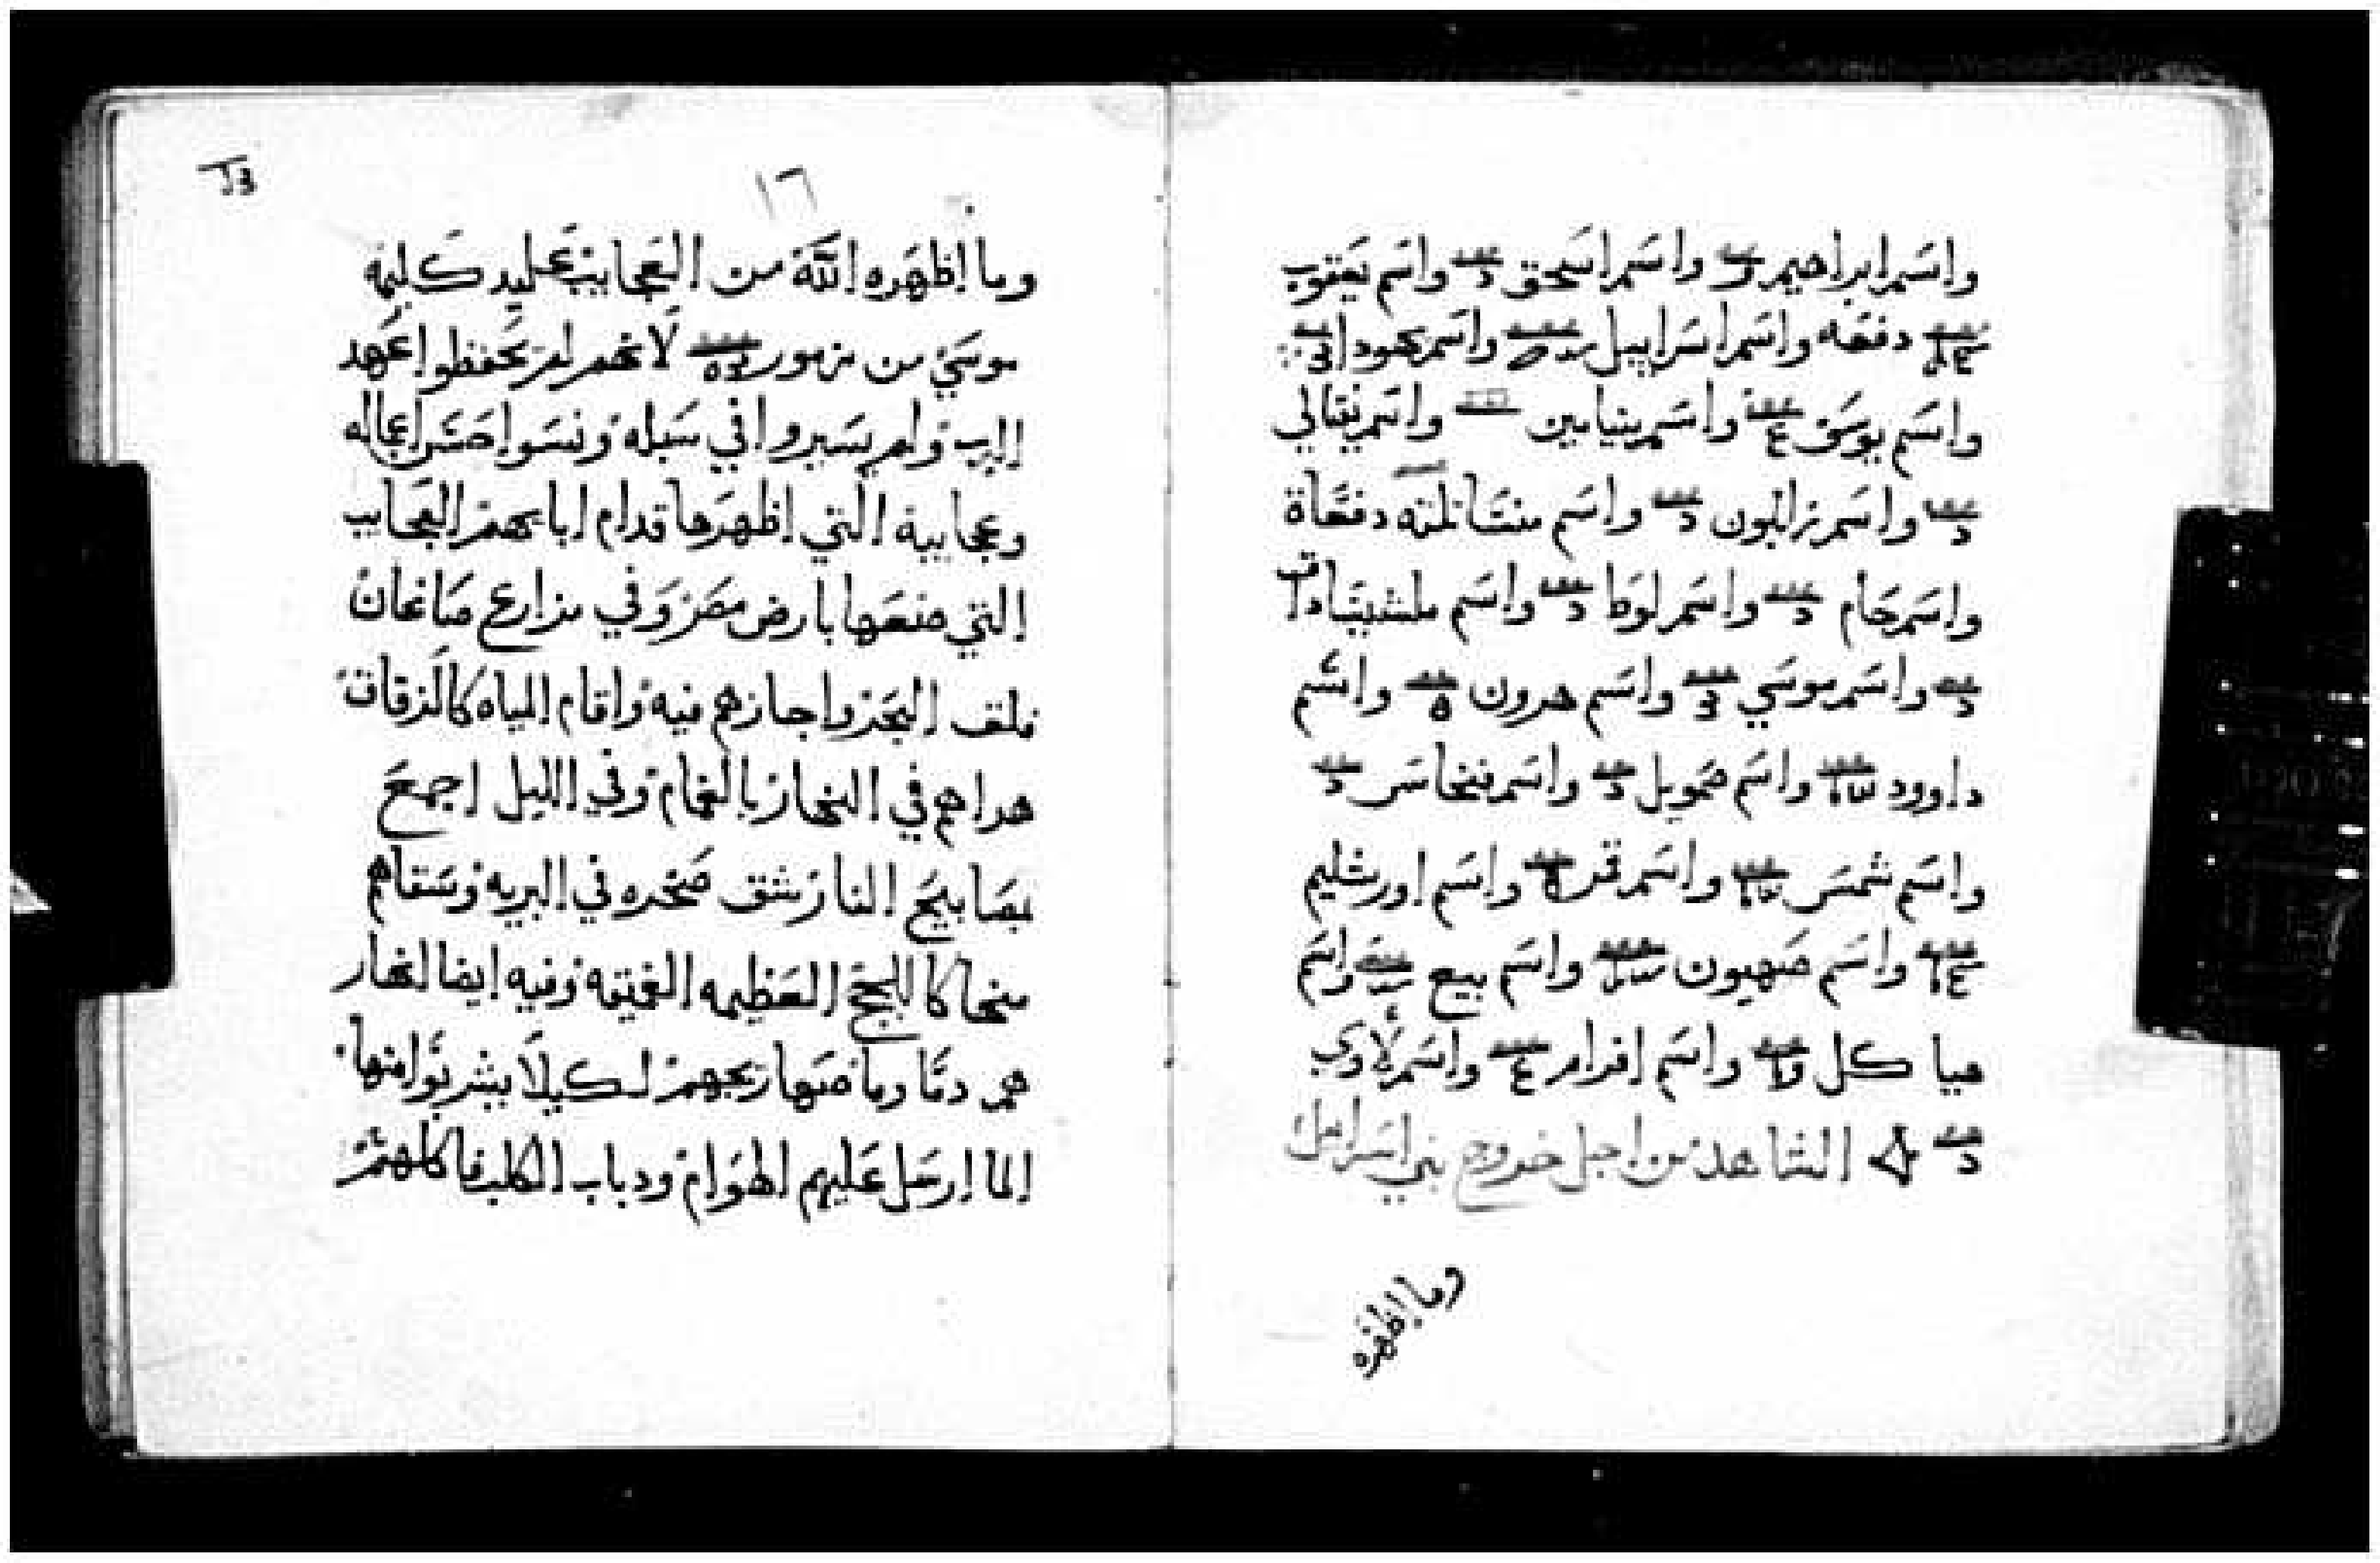 واسم ابراهيم واسم اسحق واسم يعقوب
دفعه واسم اسراييل واسم يهودا
واسم يوسف واسم بنيامين واسم نفتالي
واسم زابلون واسم منشا ثلثه دفعاة
واسم حام واسم لوط واسم ملشيساداق
واسم موسي واسم هرون واسم
داوود واسم صمويل واسم فنحاس
واسم شمس واسم قمر واسم اورشليم
واسم صهيون واسم بيع واسم
هيا كل واسم افرام واسم لاوي
الشاهد من اجل خروج بني اسراييل
وما اظهره
١٦
وما اظهره الله من العجايب علي يد كليمه
موسي من مزمور لانهم لم يحفظوا عهد
الرب ولم يسيروا في سبله ونسوا حسن اعماله
وعجايبه التي اظهرها قدام ابايهم العجايب
التي صنعها بارض مصر وفي مزارع صاغان
فلق البحر واجازهم فيه واقام المياه كالزقاق
هداهم في النهار بالغمام وفي الليل اجمع
بمصابيح النار شق صخره في البريه وسقاهم
منها كاللجج العظيمه العميقه وفيه ايضا انهار
هم دما وما صهاريجهم لكيلا يشربوا منها
الما ارسل عليهم الهوام ودباب الكلب فاكلهم